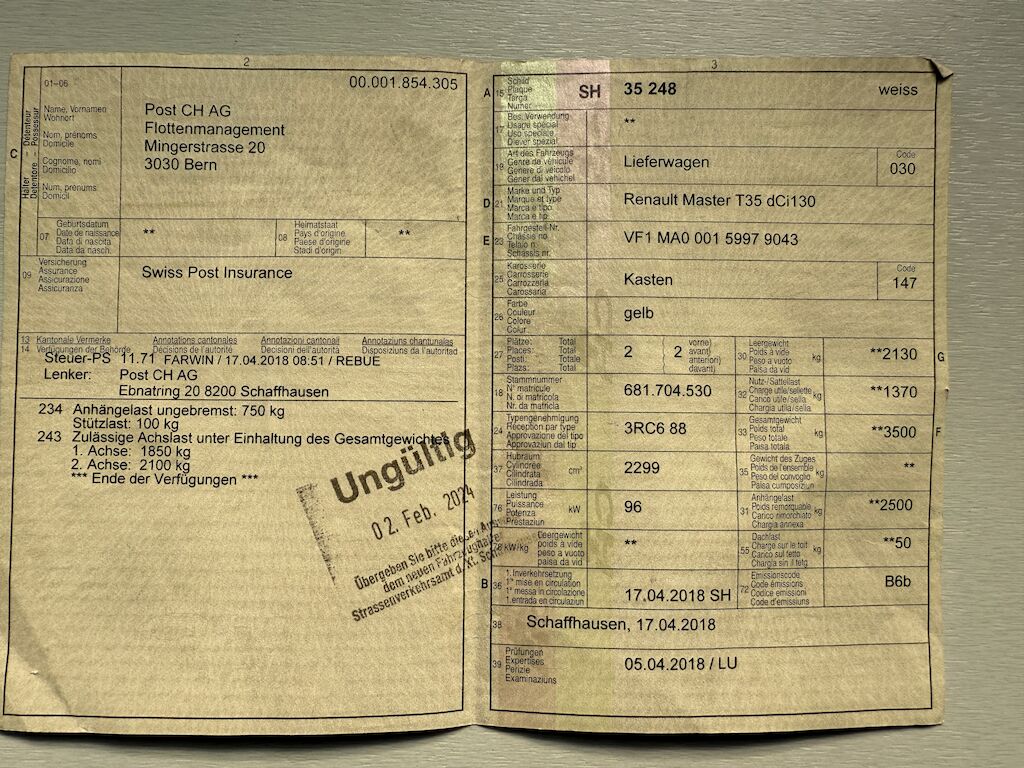 2
01–06
00.001.854.305
C
Halter – Détenteur
Detentore – Possessur
Name, Vornamen
Wohnort
Nom, prénoms
Domicile
Cognome, nomi
Domicilio
Num, prenums
Domicil
Post CH AG
Flottenmanagement
Mingerstrasse 20
3030 Bern
07
Geburtsdatum
Date de naissance
Data di nascita
Data da nasch.
**
08
Heimatstaat
Pays d'origine
Paese d'origine
Stadi d'origin
**
09
Versicherung
Assurance
Assicurazione
Assicuranza
Swiss Post Insurance
13 Kantonale Vermerke Annotations cantonales Annotazioni cantonali Annotaziuns chantunalas
14 Verfügungen der Behörde Décisions de l'autorité Decisioni dell'autorità Disposiziuns da l'autoritad
Steuer-PS 11.71 FARWIN / 17.04.2018 08:51 / REBUE
Lenker: Post CH AG
Ebnatring 20 8200 Schaffhausen
234 Anhängelast ungebremst: 750 kg
Stützlast: 100 kg
243 Zulässige Achslast unter Einhaltung des Gesamtgewichtes
1. Achse: 1850 kg
2. Achse: 2100 kg
*** Ende der Verfügungen ***
Ungültig
02. Feb. 2024
Übergeben Sie bitte diesen
dem neuen Fahrzeughalter
Strassenverkehrsamt d. Kt.
3
A
15
Schild
Plaque
Targa
Numer
SH 35 248 weiss
17
Bes. Verwendung
Usage spécial
Uso speciale
Diever spezial
**
19
Art des Fahrzeugs
Genre de véhicule
Genere di veicolo
Gener dal vehichel
Lieferwagen
Code
030
D
21
Marke und Typ
Marque et type
Marca e tipo
Marca e tip
Renault Master T35 dCi130
E
23
Fahrgestell-Nr.
Châssis no
Telaio n.
Schassis nr.
VF1 MA0 001 5997 9043
25
Karosserie
Carrosserie
Carrozzeria
Carossaria
Kasten
Code
147
26
Farbe
Couleur
Colore
Colur
gelb
27
Plätze: Total
Places: Total
Posti: Totale
Plazs: Total
2
2
vorne)
avant)
anteriori)
davant)
30
Leergewicht
Poids à vide
Peso a vuoto
Paisa da vid
kg
**2130
G
18
Stammnummer
N° matricule
N. di matricola
Nr. da matricla
681.704.530
32
Nutz-/Sattellast
Charge utile/sellette
Carico utile/sella
Chargia utila/sella
kg
**1370
24
Typengenehmigung
Réception par type
Approvazione del tipo
Approvaziun dal tip
3RC6 88
33
Gesamtgewicht
Poids total
Peso totale
Paisa totala
kg
**3500
F
37
Hubraum
Cylindrée
Cilindrata
Cilindrada
cm³
2299
35
Gewicht des Zuges
Poids de l'ensemble
Peso del convoglio
Paisa cumposiziun
kg
**
76
Leistung
Puissance
Potenza
Prestaziun
kW
96
31
Anhängelast
Poids remorquable
Carico rimorchiato
Chargia annexa
kg
**2500
78
kW/kg
Leergewicht
poids à vide
peso a vuoto
paisa da vid
**
55
Dachlast
Charge sur le toit
Carico sul tetto
Chargia sin il tetg
kg
**50
B
36
1. Inverkehrsetzung
1re mise en circulation
1a messa in circolazione
1. entrada en circulaziun
17.04.2018 SH
72
Emissionscode
Code émissions
Codice emissioni
Code d'emissiuns
B6b
38
Schaffhausen, 17.04.2018
39
Prüfungen
Expertises
Perizie
Examinaziuns
05.04.2018 / LU